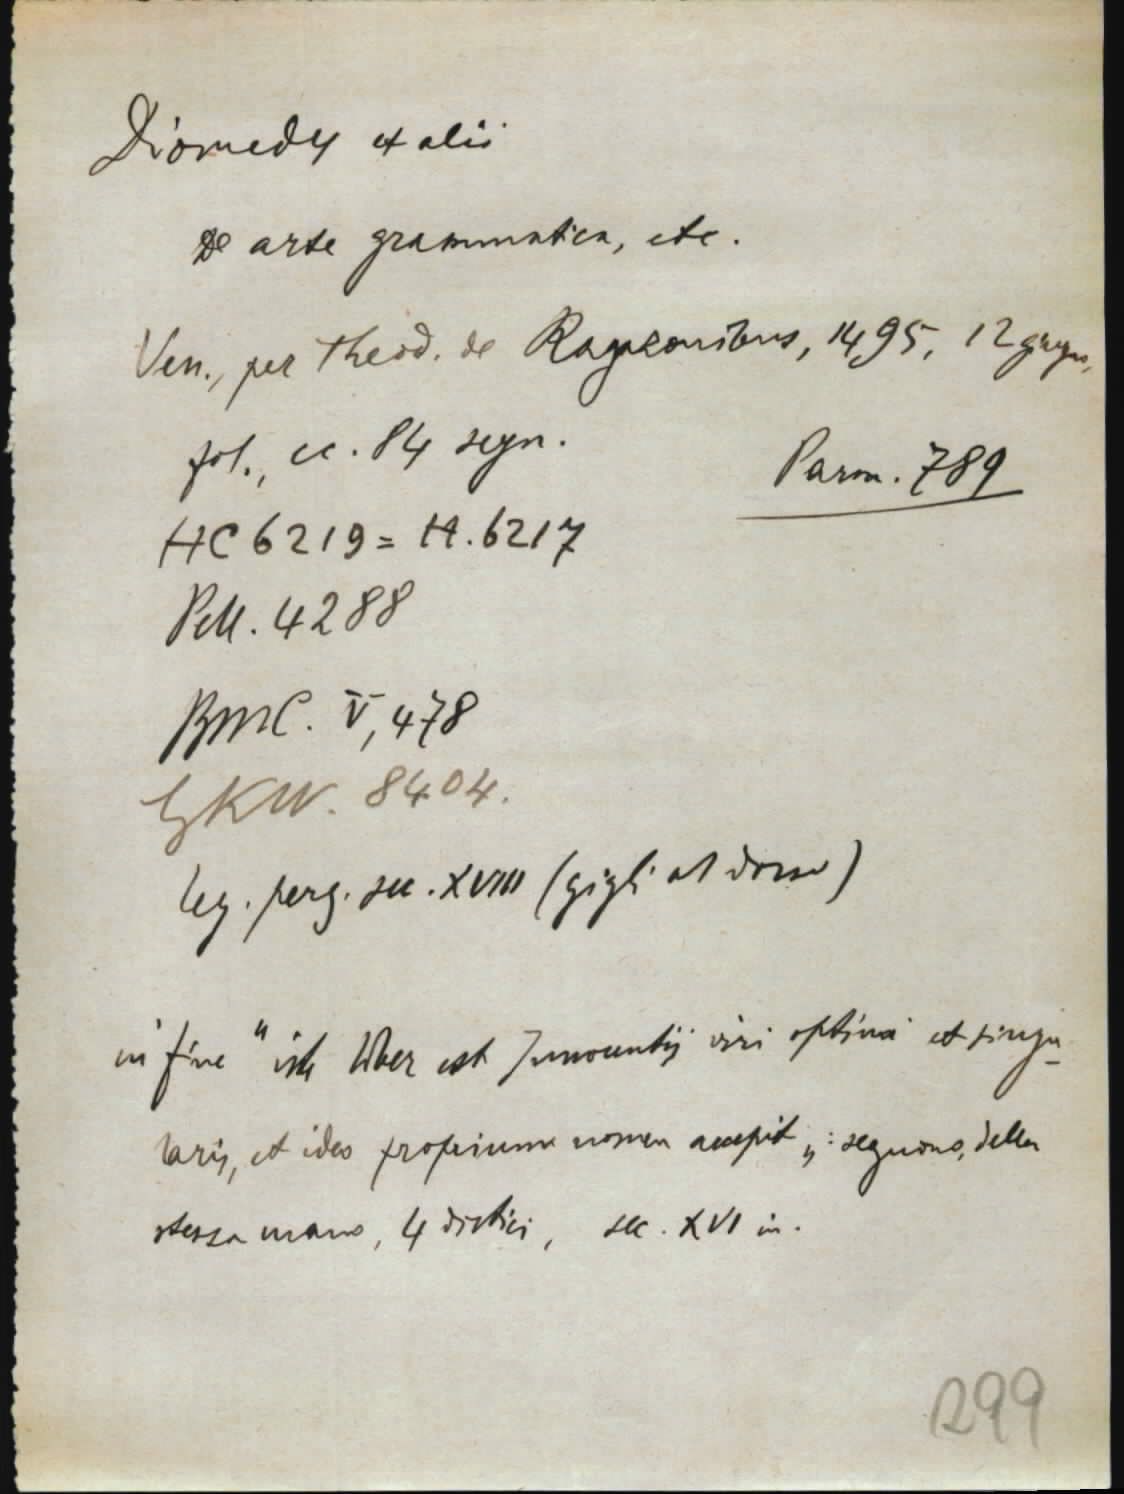 Diomedes et alii
De arte grammatica, etc.
Ven., per Theod. de Ragazonibus, 1495, 12 giugn,
fol., cc. 84 segn.
Parm. 789
HC 6219 = H. 6217
Pell. 4288
BMC. V, 478
GKW. 8404.
leg. perg. sec. XVIII (gigli al dorso)
in fine "iste liber est Innocentij viri optimi et singu-
laris, et ideo proprium nomen accepit „: seguono, della
stessa mano, 4 distici, sec. XVI in.
299